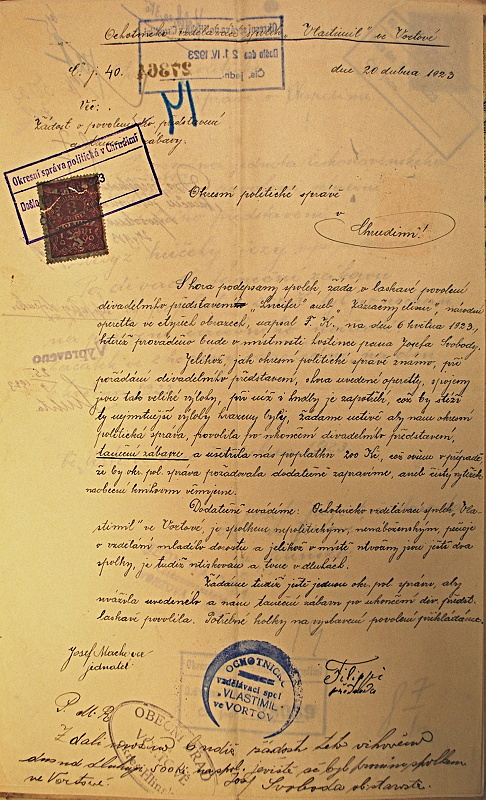 Ochotnicko vzdělávací spolek „Vlastimil“ ve Vortové
Č. j. 40.
dne 20 dubna 1923
Došlo dne 21. IV. 1923
27364
Čís. jedn.
Věc:
Žádost o povolení div. představení
a taneční zábavy.
Okresní správa politická v Chrudimi
Došlo
Okresní politické správě
v
Chrudimi!
Shora podepsaný spolek, žádá o laskavé povolení
divadelního představení aneb „Zázračný elixír“, národní
opereta ve čtyřech obrazech, napsal F. K., na den 6 května 1923,
kteréž prováděno bude v místnosti hostince pana Josefa Svobody.
Vypraveno
Jelikož, jak okresní politické správě známo, při
pořádání divadelního představení, shora uvedené operetty, spojeny
jsou tak veliké výlohy, jich zapotřebí, což by stěží
ty nejnutnější výlohy hrazeny byly, žádáme uctivě aby nám okresní
politická správa, povolila po ukončení divadelního představení,
taneční zábavu a ušetřila nás poplatku 200 Kč, což ovšem v případě
že by okr. pol. správa požadovala dodatečně zapravíme, aneb čistý výtěžek
naobecní knihovnu věnujeme.
Dodatečně uvádíme: Ochotnicko vzdělávací spolek, „Vla-
stimil“ ve Vortové, je spolkem nepolitickým, nenáboženským, pečuje
o vzdělání mladého dorostu a jelikož v místě utvořeny jsou ještě dva
spolky, je tudíž utiskován a tone v dluhách.
Žádáme tudíž ještě jednou okr. pol. správu, aby
uvážila uvedeného a nám taneční zábavu po ukončení div. předst.
laskavě povolila. Potřebné kolky na vystavení povolení přikládáme.
Josef Machova
jednatel
OCHOTNICKO
vzdělávací spol
„VLASTIMIL“
ve VORTOVÉ
Filippi
předseda
OBECNÍ ÚŘAD
Z dali žádost
na dluhy 500 Kč
ve Vortové. Jos. Svoboda obstarosta.